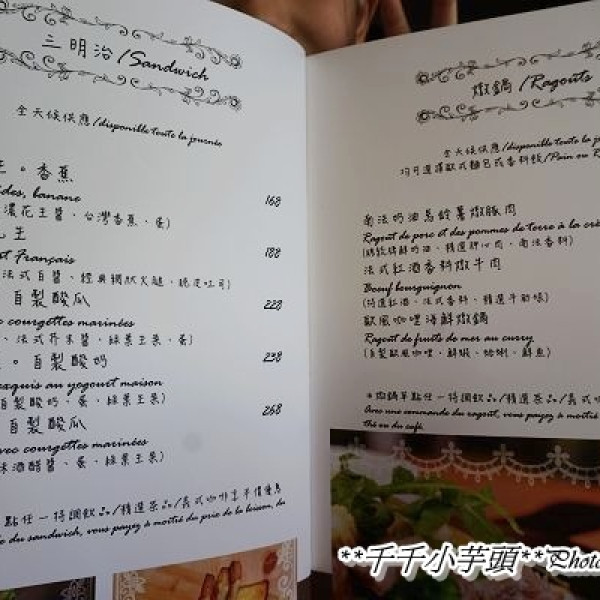 三明治/Sandwich
全天候供應/disponible toute la journée
。香蕉
des, banane 168
濃花生醬、台灣香蕉、蛋)
st Français 188
法式白醬、經典網狀火腿、脆皮吐司)
自製酸瓜 228
ec courgettes marinées
、法式芥末醬、綠葉生菜、蛋)
。自製酸奶 238
exquis au yogourt maison
自製酸奶、蛋、綠葉生菜)
自製酸瓜 268
vec courgettes marinées
酒醋醬、蛋、綠葉生菜)
點任一特調飲品/精選茶品/義式咖啡享半價優惠
du sandwich, vous payez à moitié du prix de la boisson, du
燉鍋/Ragoûts
全天候供應/disponible toute la j
均可選擇歐式麵包或香料飯/Pain ou R
南法奶油馬鈴薯燉豚肉
Ragoût de porc et des pommes de terre à la crè
法式紅酒香料燉牛肉
Boeuf bourguignon
(特選紅酒、法式香料、精選牛
歐風咖哩海鮮燉鍋
Ragoût de fruits de mer au curry
(自製歐風咖哩、鮮蝦、蛤蜊、鮮魚)
*燉鍋單點任一特調飲品/精選茶品/義式咖
Avec une commande du ragoût, vous payez à moitié
thé ou du café.
**千千小芋頭**Photo